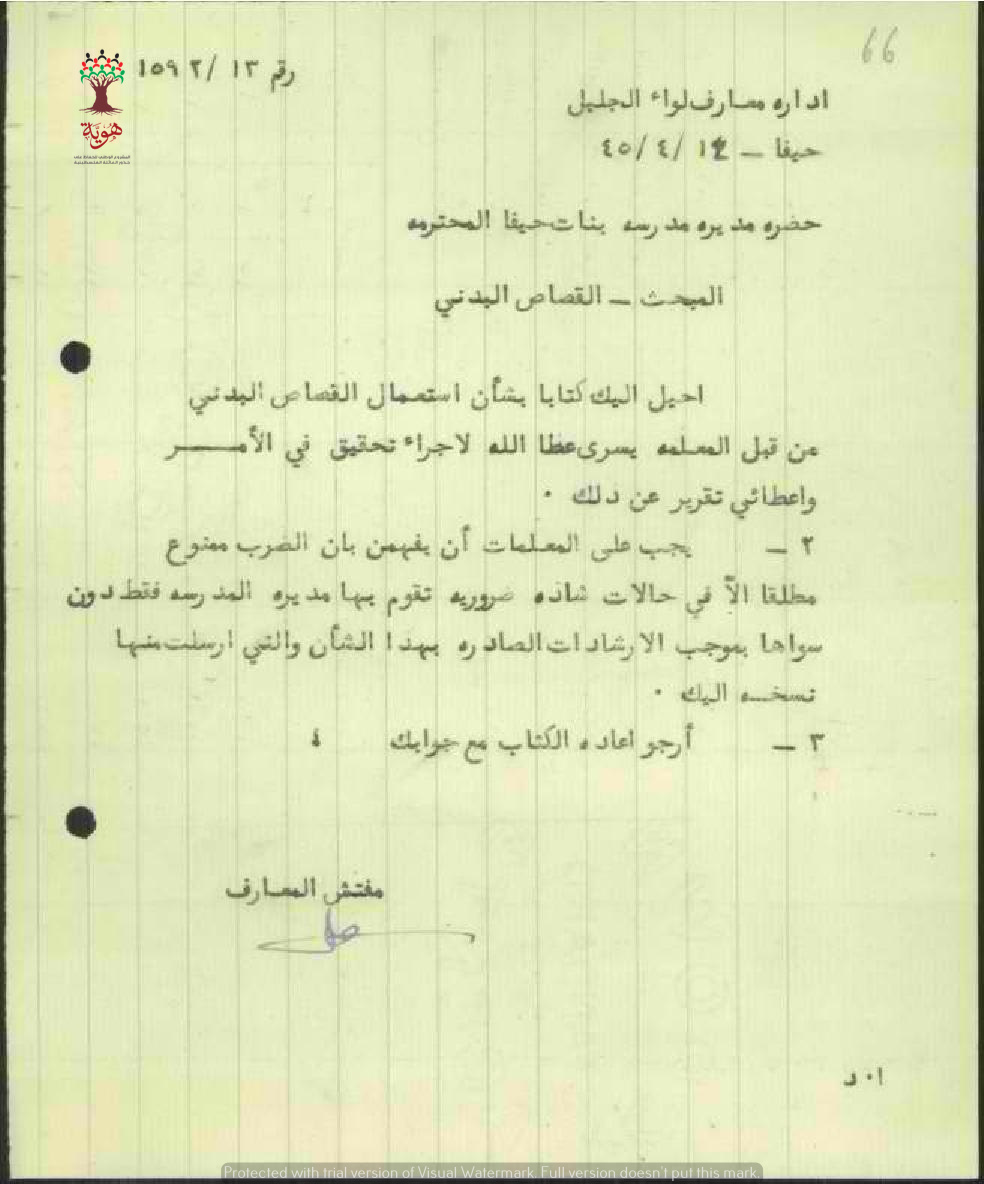 66
رقم ١٣ /٢ ١٥٩
اداره معارف لواء الجليل
حيفا – ١٢ /٤ /٤٥
حضره مديره مدرسه بنات حيفا المحترمه
المبحث – القصاص البدني
احيل اليك كتابا بشأن استعمال القصاص البدني
من قبل المعلمه يسرى عطا الله لاجراء تحقيق في الأمــــر
واعطائي تقرير عن ذلك .
٢ – يجب على المعلمات أن يفهمن بان الضرب ممنوع
مطلقا الاّ في حالات شاذه ضروريه تقوم بها مديره المدرسه فقط دون
سواها بموجب الارشادات الصادره بهذا الشأن والتي ارسلت منها
نسخـه اليك .
٣ – أرجو اعاده الكتاب مع جوابك
مفتش المعارف
ا . د
هوية
Protected with trial version of Visual Watermark. Full version doesn't put this mark.